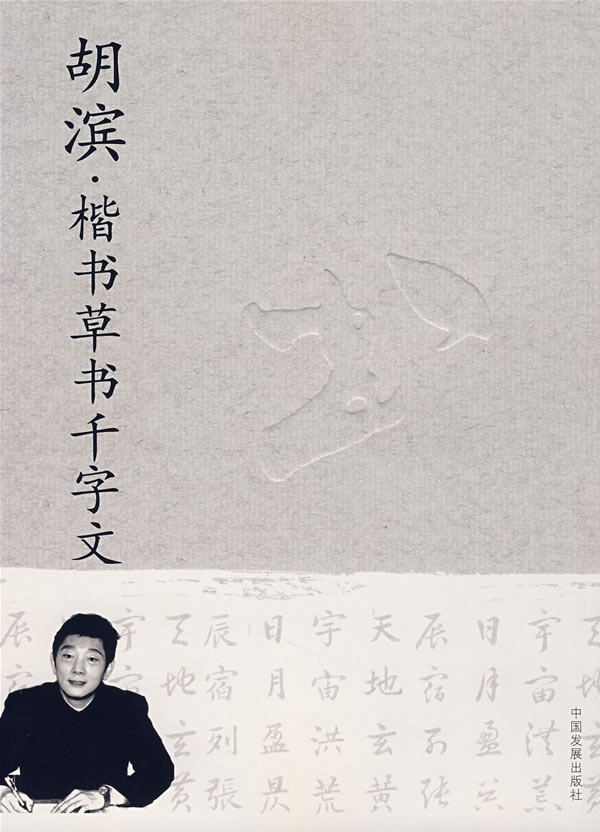 胡滨·楷书草书千字文
宇宙洪荒
日月盈昃
辰宿列張
天地玄黄
宇宙洪荒
日月盈昃
辰宿列張
天地玄黄
宇
辰
中国发展出版社